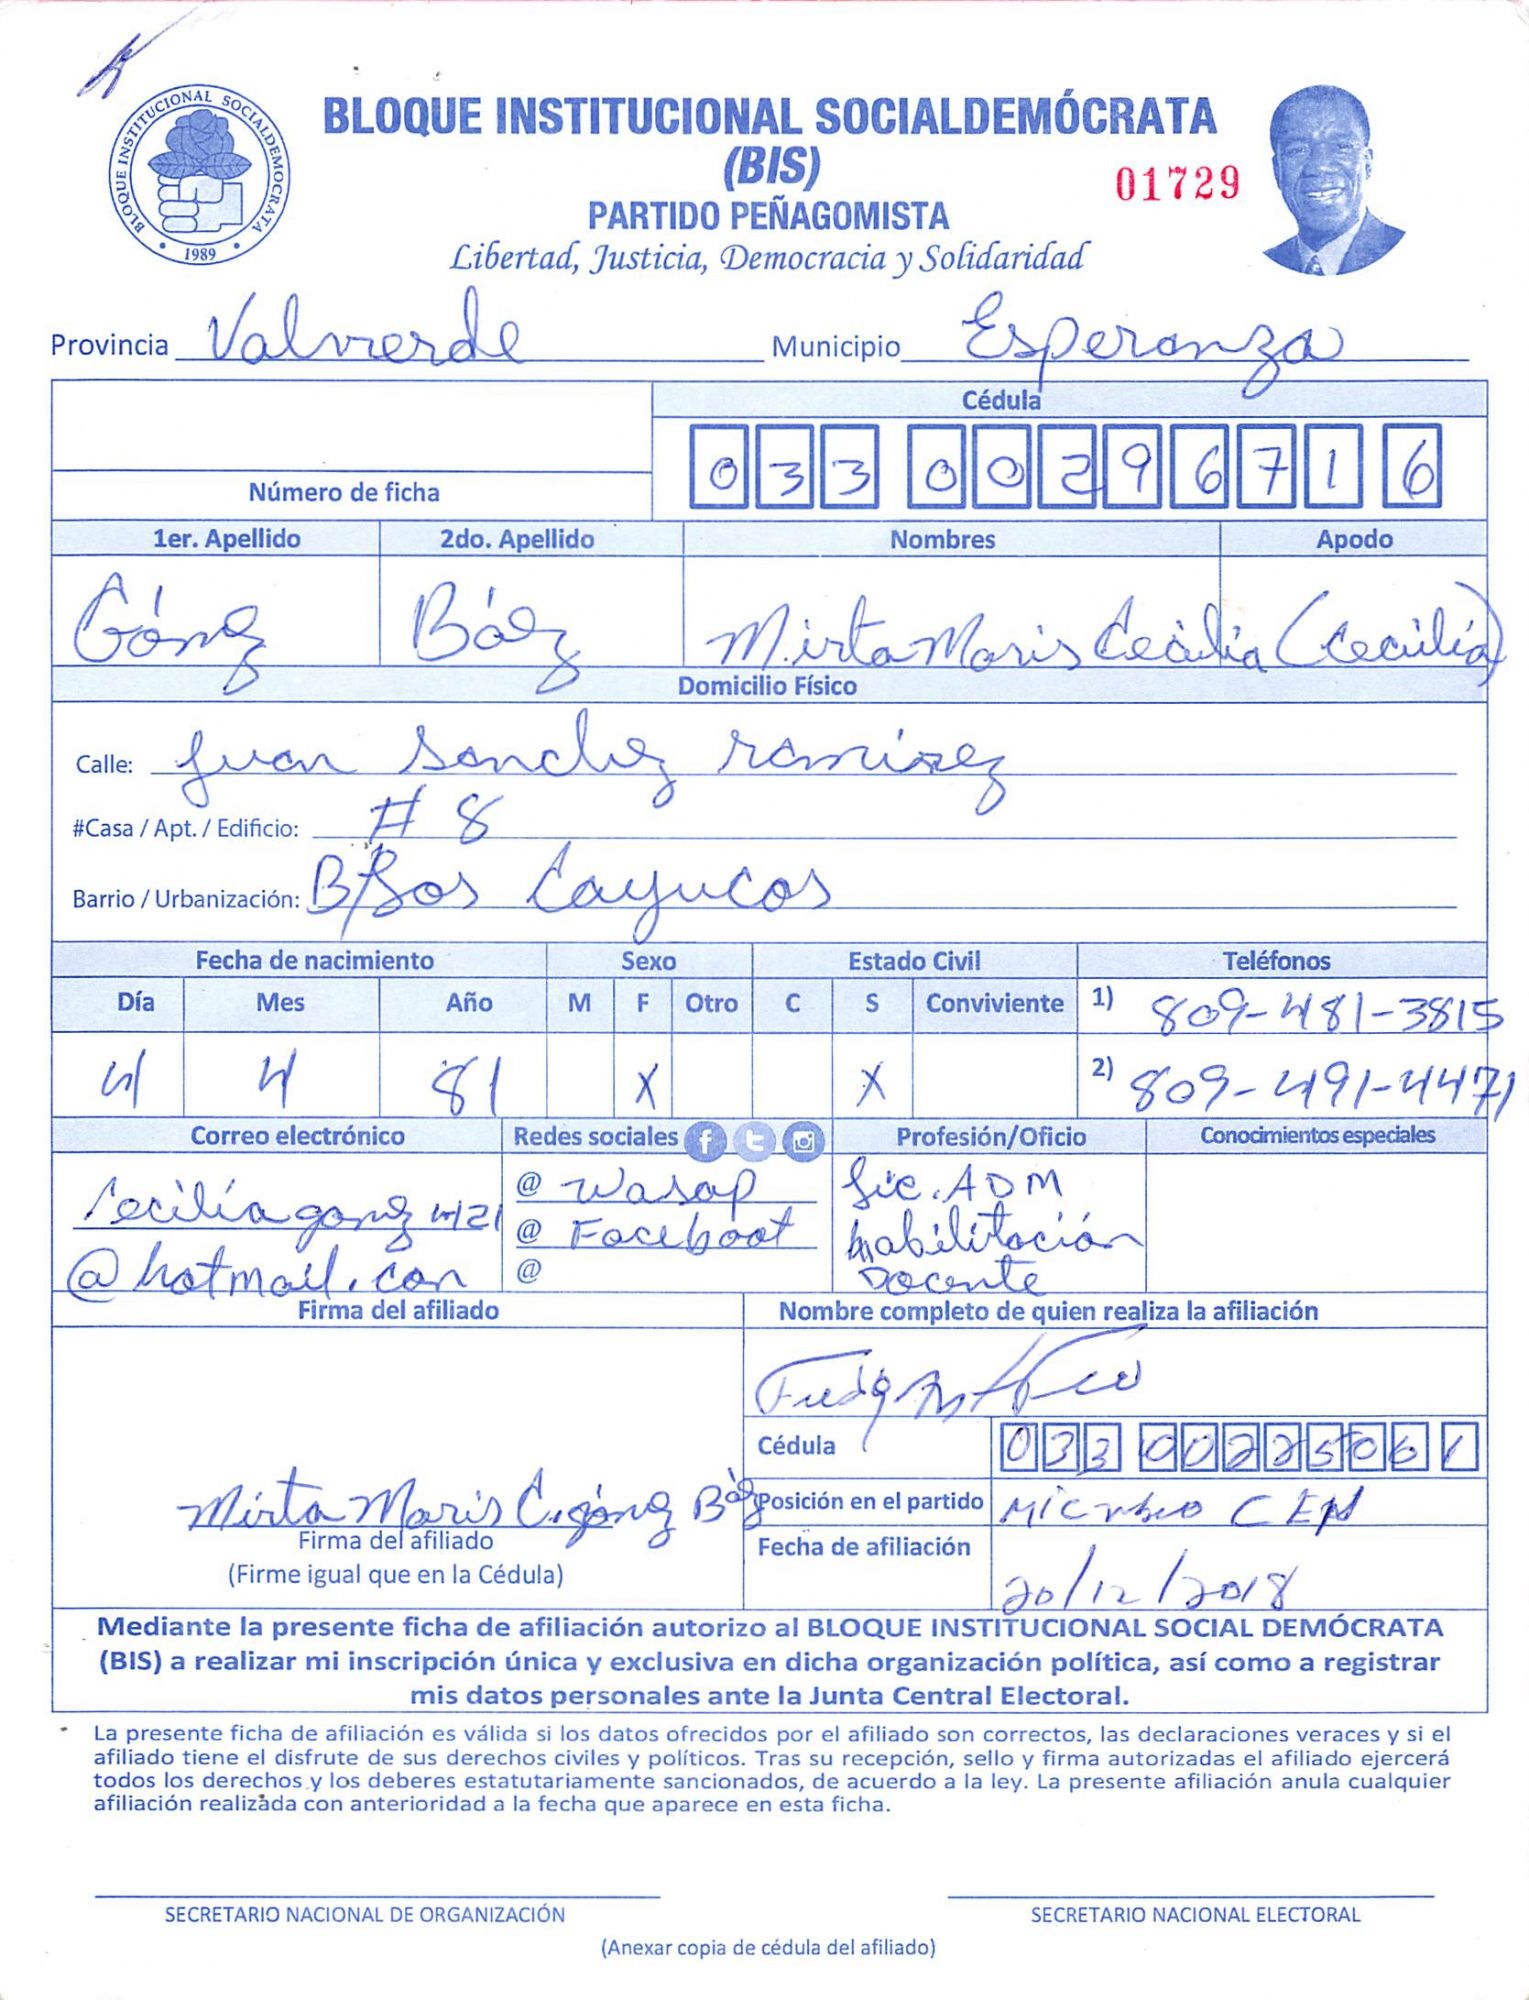 BLOQUE INSTITUCIONAL SOCIALDEMOCRATA
1989
BLOQUE INSTITUCIONAL SOCIALDEMÓCRATA
(BIS)
01729
PARTIDO PEÑAGOMISTA
Libertad, Justicia, Democracia y Solidaridad
Provincia Valverde Municipio Esperanza
Cédula
033 0029671 6
Número de ficha
1er. Apellido 2do. Apellido Nombres Apodo
Gómez Báez Mirta Maris Cecilia (Cecilia)
Domicilio Físico
Calle: Juan Sanchez Ramirez
#Casa / Apt. / Edificio: # 8
Barrio / Urbanización: B/Los Cayucos
Fecha de nacimiento Sexo Estado Civil Teléfonos
Día Mes Año M F Otro C S Conviviente 1) 809-481-3815
4 4 81 X X 2) 809-491-4471
Correo electrónico Redes sociales Profesión/Oficio Conocimientos especiales
Ceciliagomez421 @ Wasap Lic. ADM
@hotmail.con @ Faceboot habilitación
@ Docente
Firma del afiliado Nombre completo de quien realiza la afiliación
Cédula 033 0022506 1
Mirta Maris C. gómez Báez
Posición en el partido Miembro CEN
Firma del afiliado
Fecha de afiliación 20/12/2018
(Firme igual que en la Cédula)
Mediante la presente ficha de afiliación autorizo al BLOQUE INSTITUCIONAL SOCIAL DEMÓCRATA
(BIS) a realizar mi inscripción única y exclusiva en dicha organización política, así como a registrar
mis datos personales ante la Junta Central Electoral.
La presente ficha de afiliación es válida si los datos ofrecidos por el afiliado son correctos, las declaraciones veraces y si el
afiliado tiene el disfrute de sus derechos civiles y políticos. Tras su recepción, sello y firma autorizadas el afiliado ejercerá
todos los derechos y los deberes estatutariamente sancionados, de acuerdo a la ley. La presente afiliación anula cualquier
afiliación realizada con anterioridad a la fecha que aparece en esta ficha.
SECRETARIO NACIONAL DE ORGANIZACIÓN SECRETARIO NACIONAL ELECTORAL
(Anexar copia de cédula del afiliado)